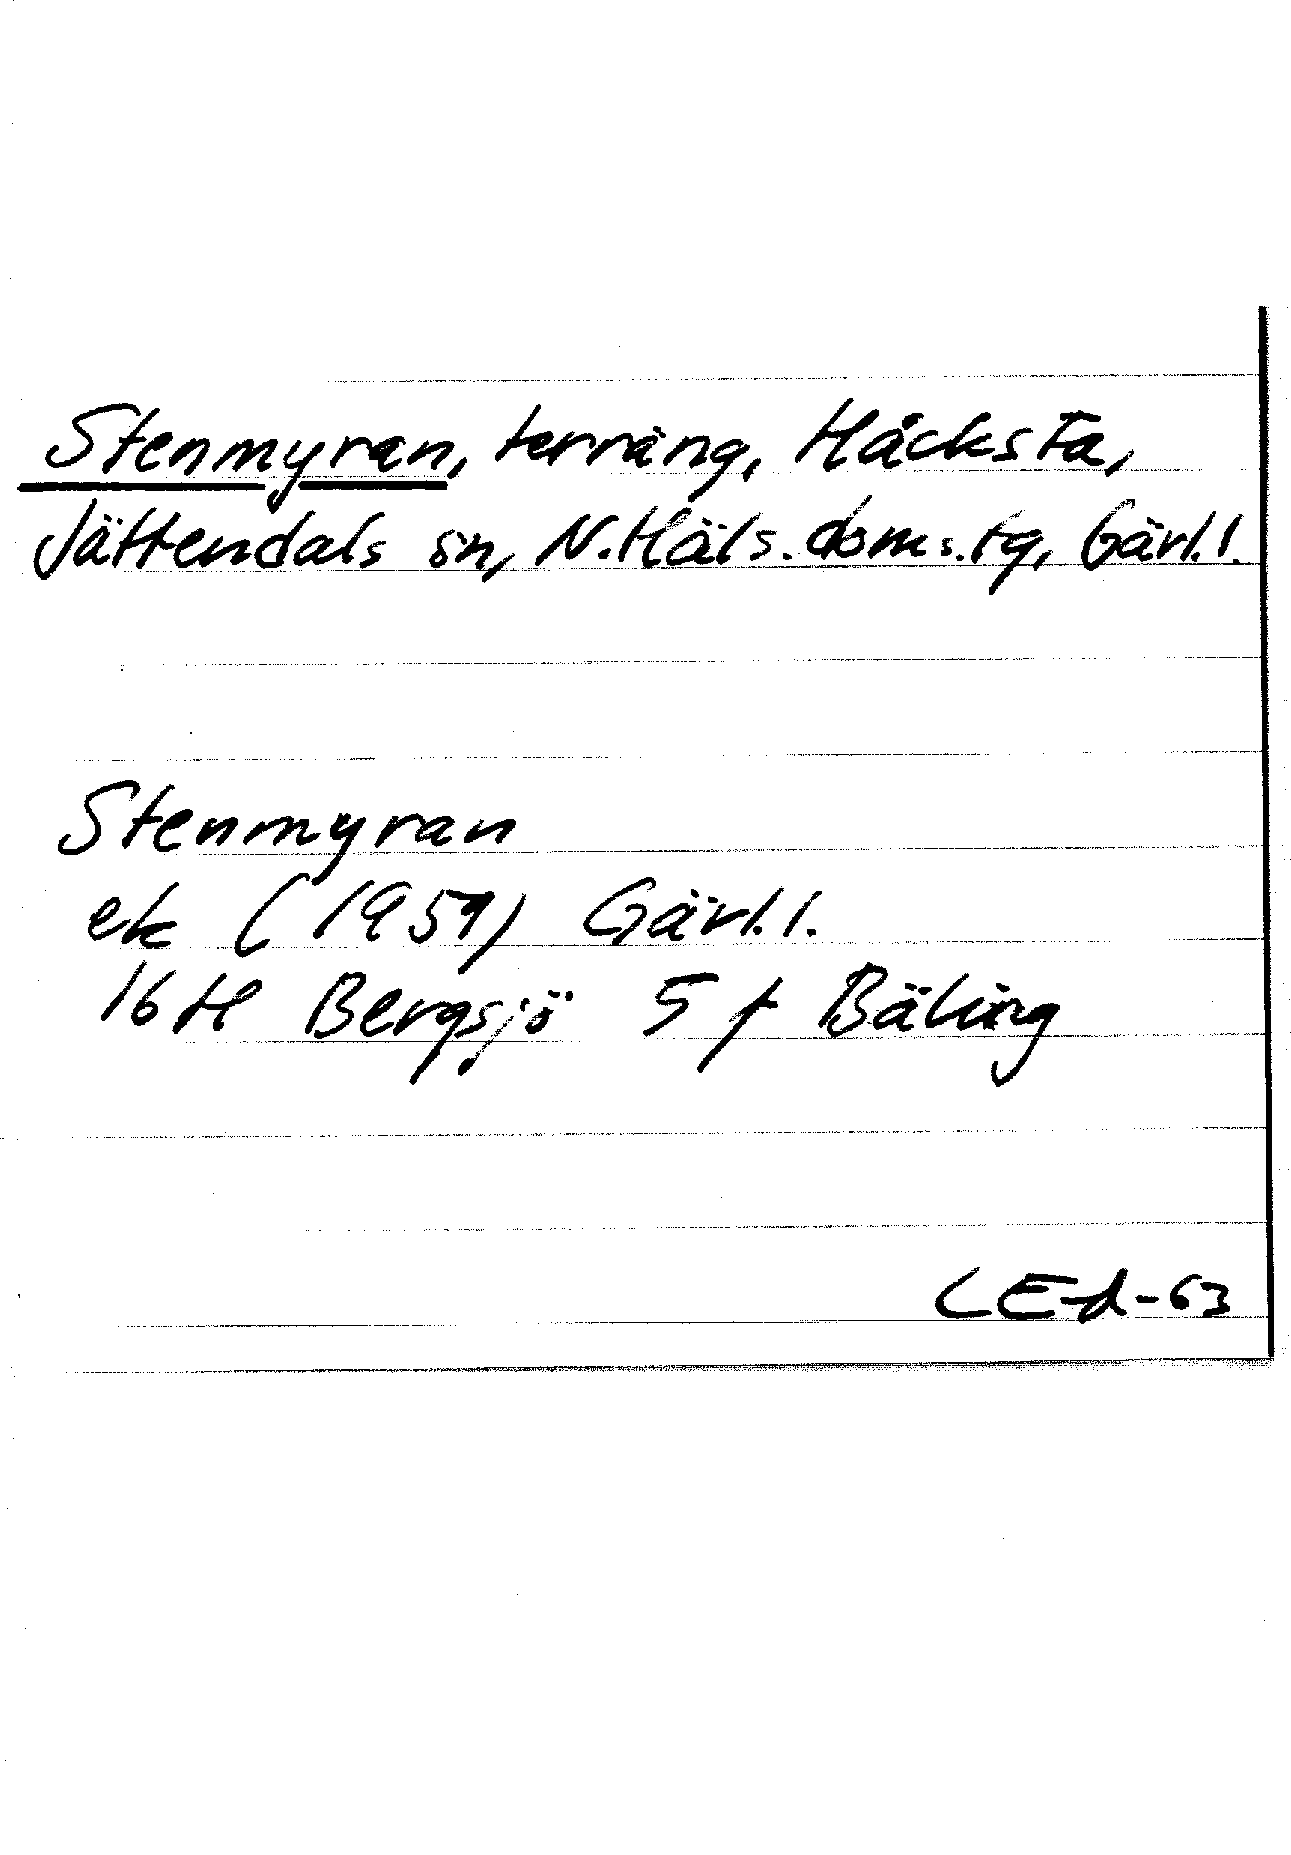 Stenmyran, terräng, Håcksta,
Jättendals sn, N. Häls. doms. tg, Gävl. l.
Stenmyran
ek (1959) Gävl. l.
16 H Bergsjö 5 f Bäling
LEd-63